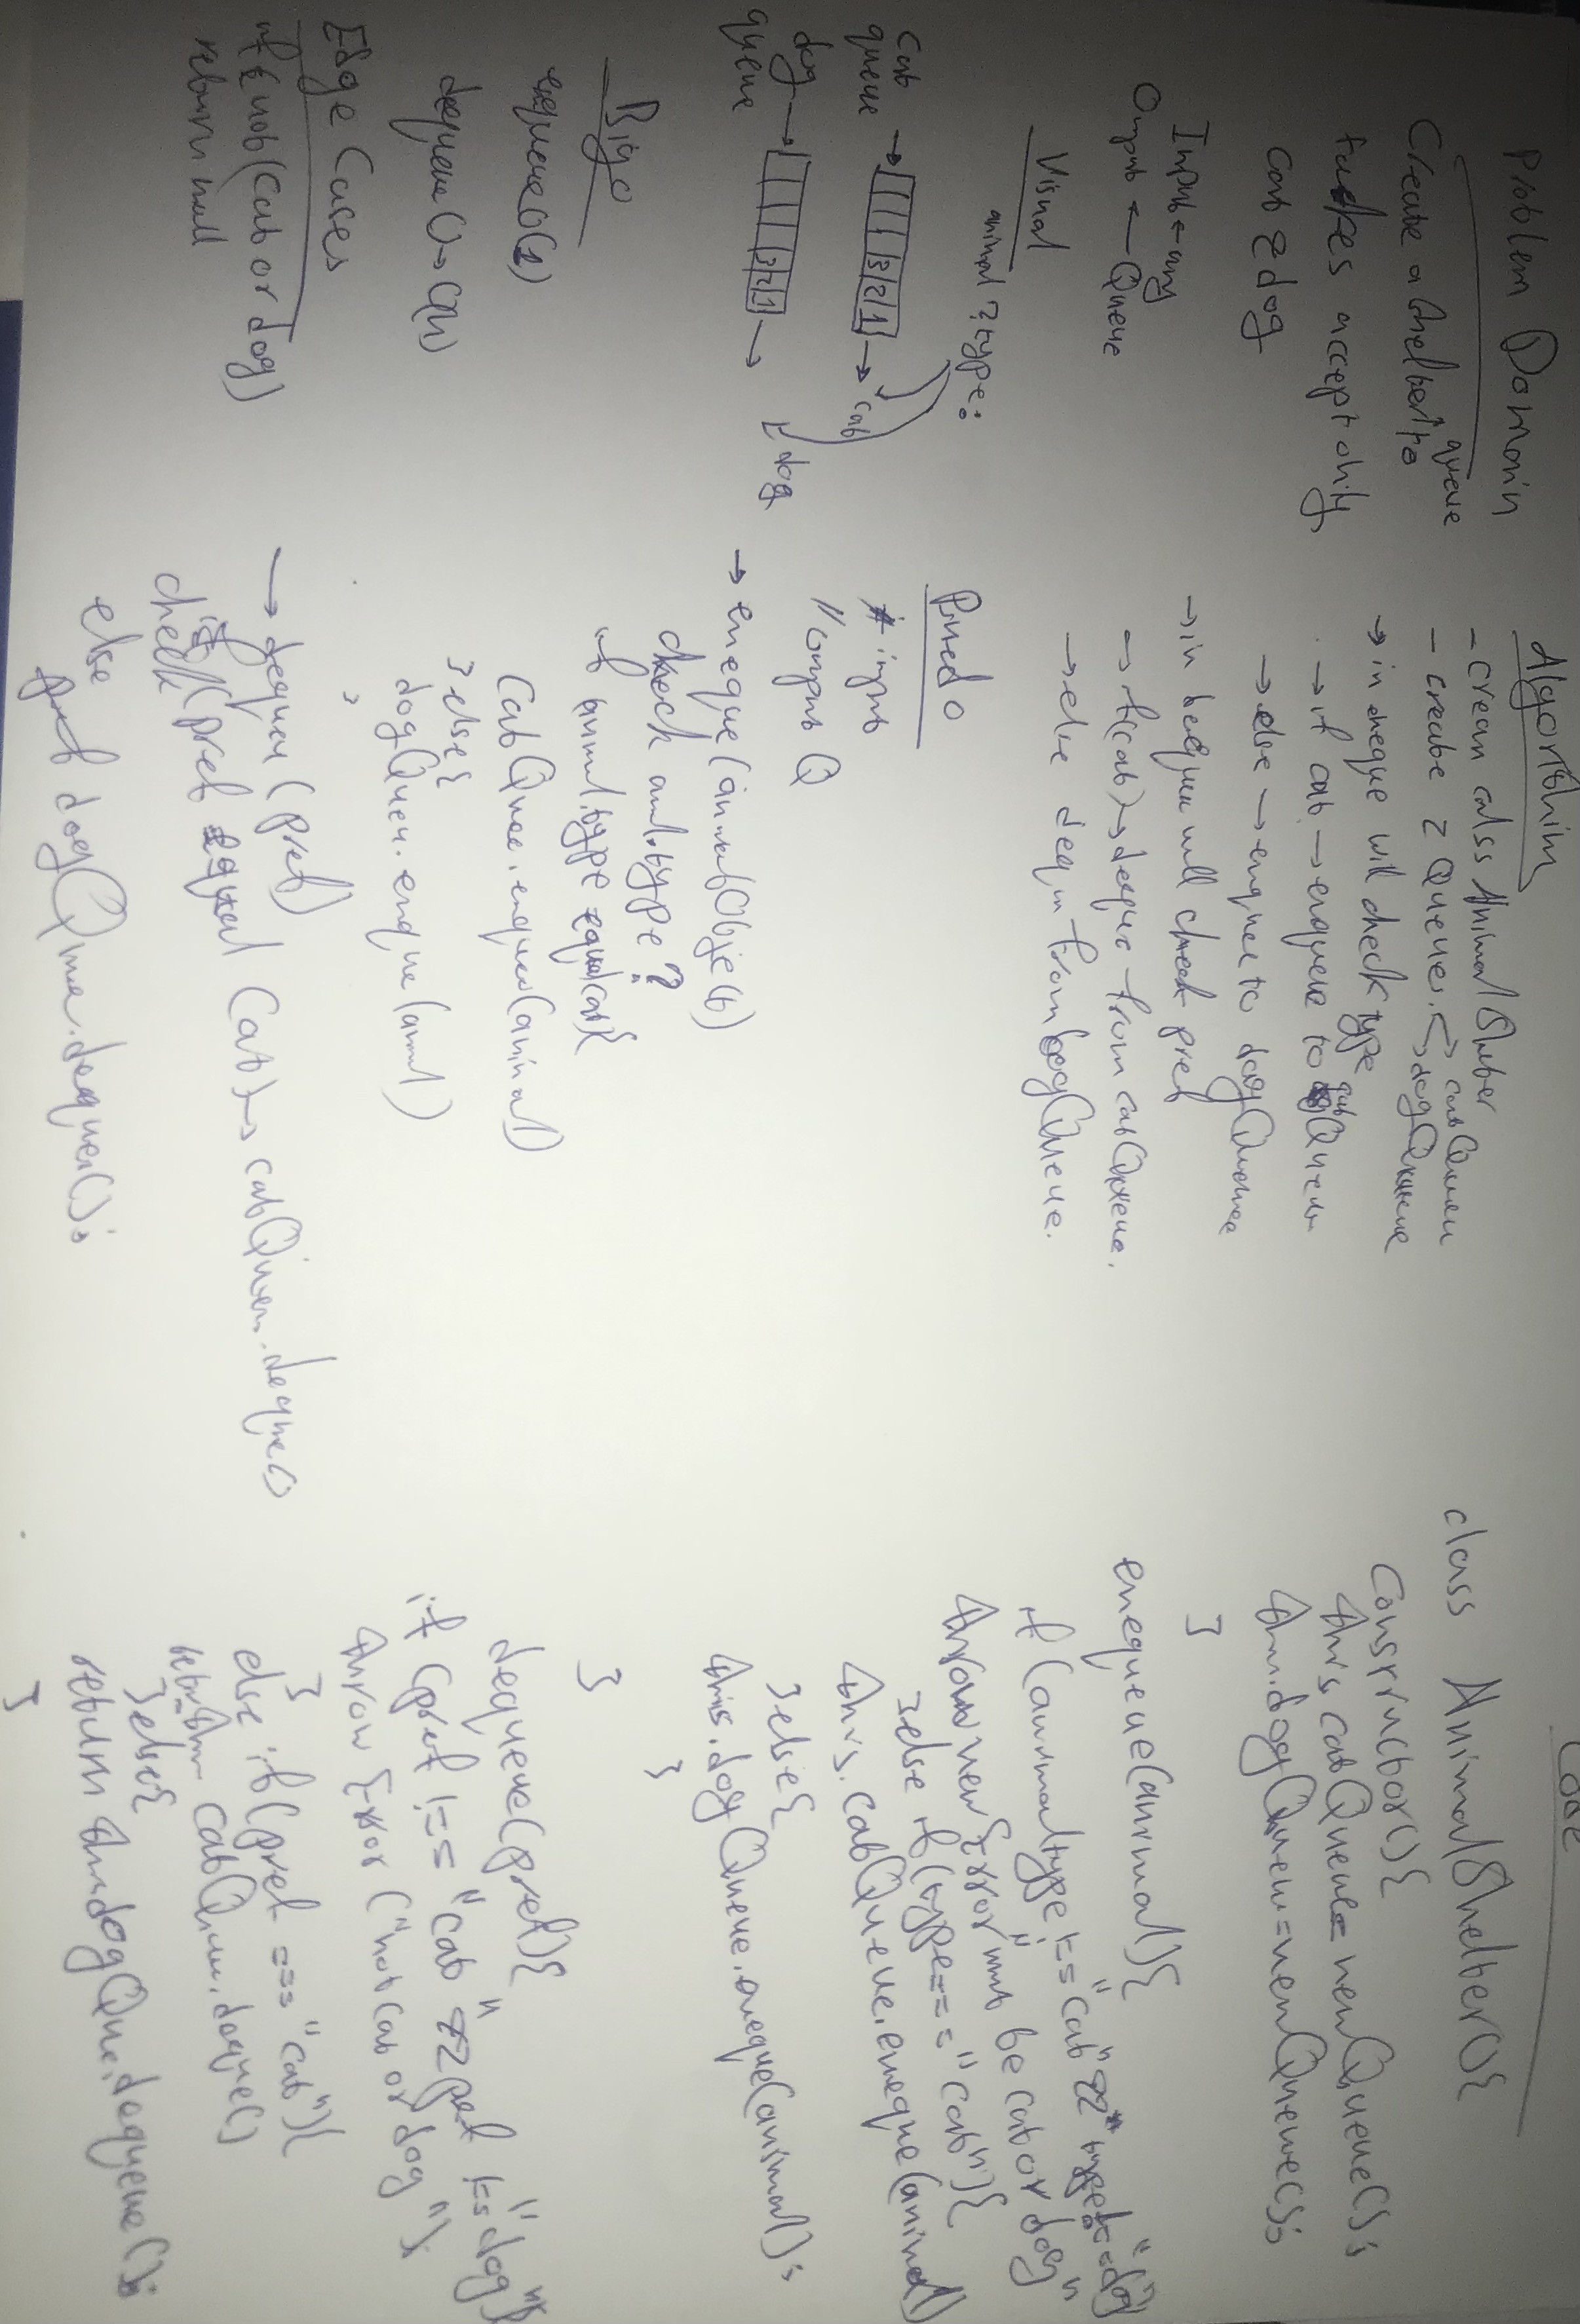 Problem Domain
queue
Create a shelter to
takes accept only
cat & dog
Input ← any
Output ← Queue
Visual
animal ? type:
Cat
queue
3 2 1
cat
dog
queue
3 2 1
dog
Big o
enqueue O(1)
dequeue () → O(n)
Edge Cases
if not (Cat or dog)
return null
Algorithim
- crean calss Animal Shelter
- create 2 Queues. catQueue
dogQueue
→ in eneque will check type
→ if cat → enqueue to catQueue
→ else → enquee to dogQueue
→ in deque will check pref
→ if(cat) → deque from catQueue.
→ else deque from dogQueue.
Psuedo
input
// output Q
→ eneque (animalObject)
check animal.type ?
if animal.type equal cat{
CatQuee.enqueu(animal)
} else {
dogQueu.enque(animal)
}
→ dequeu (pref)
if (pref equal Cat) → catQueue.deque()
check
else
dogQueue.dequeu();
Code
class AnimalShelter(){
constructor(){
this.catQueue = new Queue();
this.dogQueue = new Queue();
}
enequeue(animal){
if (animal type !== "cat" && type !== "dog")
throw new Error "must be cat or dog"
}else if (type === "cat"){
this.catQueue.eneque(animal)
}else{
this.dogQueue.eneque(animal);
}
}
dequeue(pref){
if (pref !== "cat" && pref !== "dog"){
throw Error ("not cat or dog");
}
else if (pref === "cat"){
return this catQueue.deque()
}else{
return this.dogQue.dequeue();
}